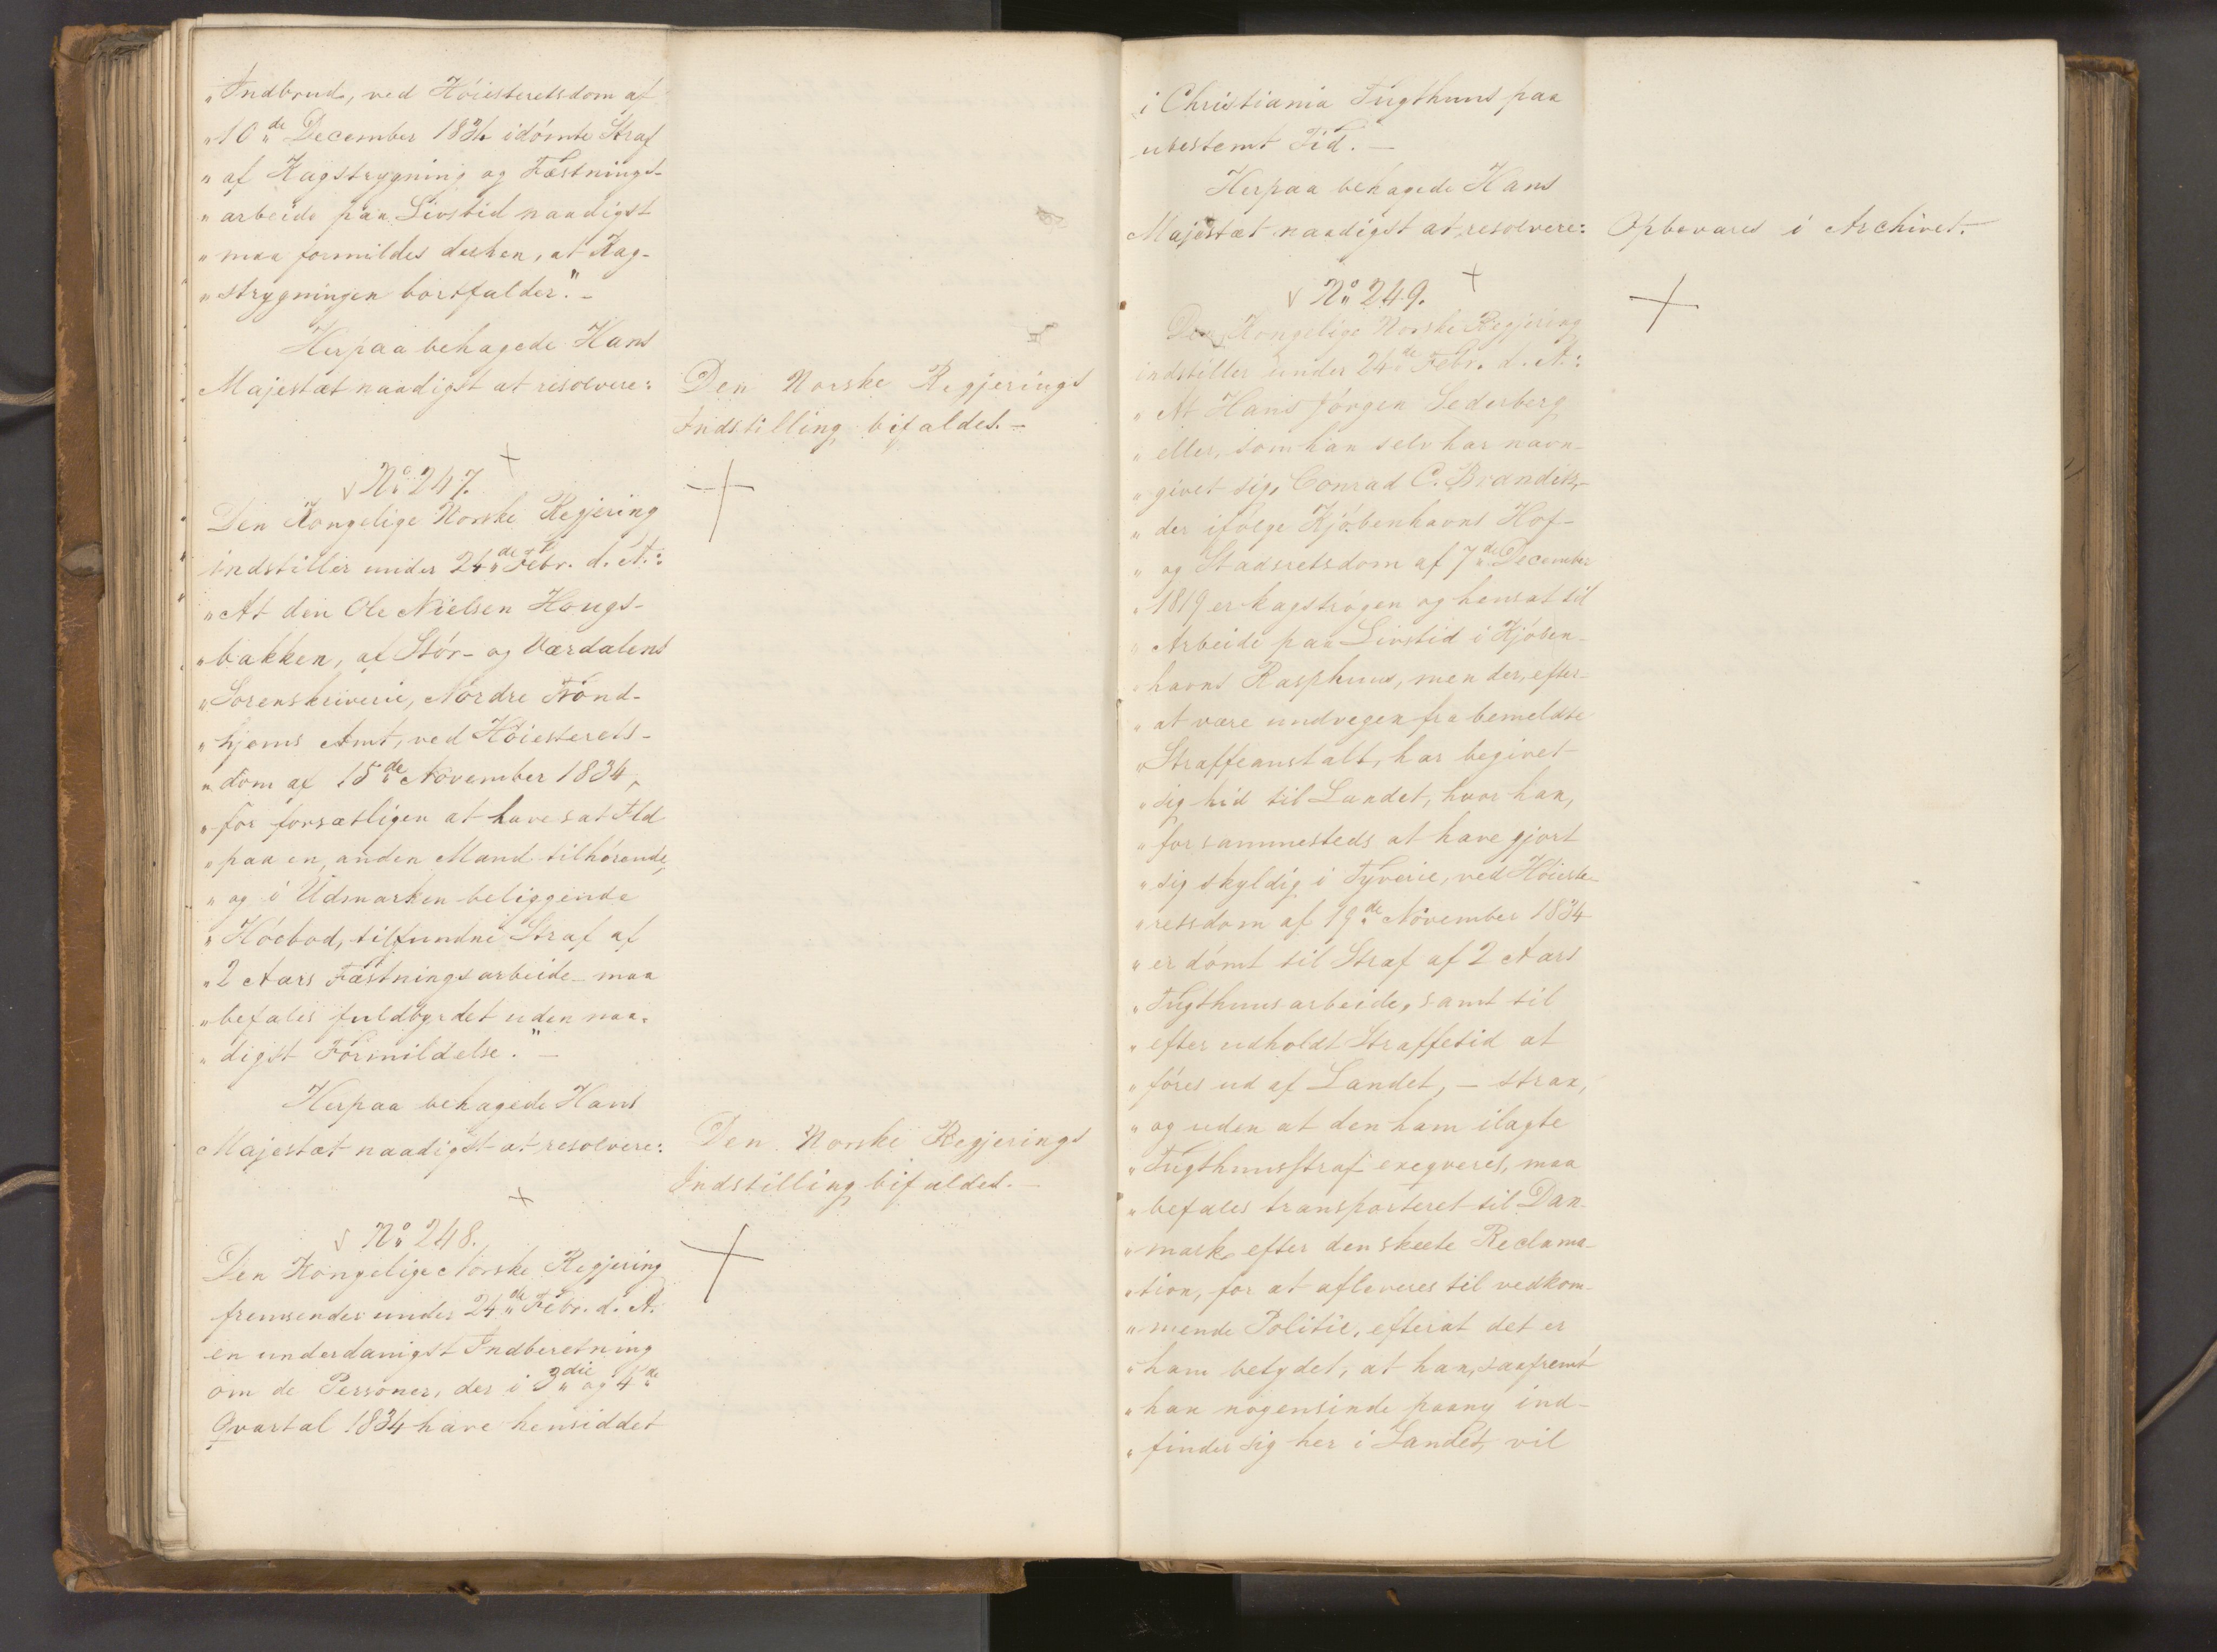 „Indbrud, ved Höiesteretsdom af
„10de December 1834 idömte Straf
„af Kagstrygning og Fæstnings-
„arbeide paa Livstid naadigst
„maa formildes derhen, at Kag-
„strygningen bortfalder." –
Herpaa behagede Hans
Majestæt naadigst at resolvere:
Den Norske Regjerings
Indstilling bifaldes. –
No 247.
Den Kongelige Norske Regjering
indstiller under 24de Febr. d. A.:
„At den Ole Nielsen Hougs-
„bakken, af Stör- og Værdalens
„Sorenskriverie, Nordre Trond-
„hjems Amt, ved Höiesterets-
„dom af 15de November 1834,
„for forsætligen at have sat Ild
„paa en, anden Mand tilhörende,
„og i Udmarken beliggende
„Höebod, tilfundne Straf af
„2 Aars Fæstningsarbeide maa
„befales fuldbyrdet uden naa-
„digst Formildelse." –
Herpaa behagede Hans
Majestæt naadigst at resolvere:
Den Norske Regjerings
Indstilling bifaldes. –
No 248.
Den Kongelige Norske Regjering
fremsender under 24de Febr. d. A.
en underdanigst Indberetning
om de Personer, der i 3die og 4de
Qvartal 1834 have hensiddet
i Christiania Tugthuus paa
ubestemt Tid. –
Herpaa behagede Hans
Majestæt naadigst at resolvere:
Opbevares i Archivet.
No 249.
Den Kongelige Norske Regjering
indstiller under 24de Febr. d. A.:
„At Hans Jörgen Sederberg
„eller, som han selv har navn-
„givet sig, Conrad C. Brandits,
„der ifölge Kjöbenhavns Hof-
„og Stadsretsdom af 7de December
„1819 er kagströgen og hensat til
„Arbeide paa Livstid i Kjöben-
„havns Rasphuus, men der, efter
„at være undvegen fra bemeldte
„Straffeanstalt, har begivet
„sig hid til Landet, hvor han,
„for sammesteds at have gjort
„sig skyldig i Tyverie, ved Höieste-
„retsdom af 19de November 1834
„er dömt til Straf af 2 Aars
„Tugthuusarbeide, samt til
„efter udholdt Straffetid at
„föres ud af Landet, – strax,
„og uden at den ham ilagte
„Tugthuusstraf exeqveres, maa
„befales transporteret til Dan-
„mark, efter den skeete Reclama-
„tion, for at afleveres til vedkom-
„mende Politie, efterat det er
„ham betydet, at han, saafremt
„han nogensinde paany ind-
„finder sig her i Landet, vil